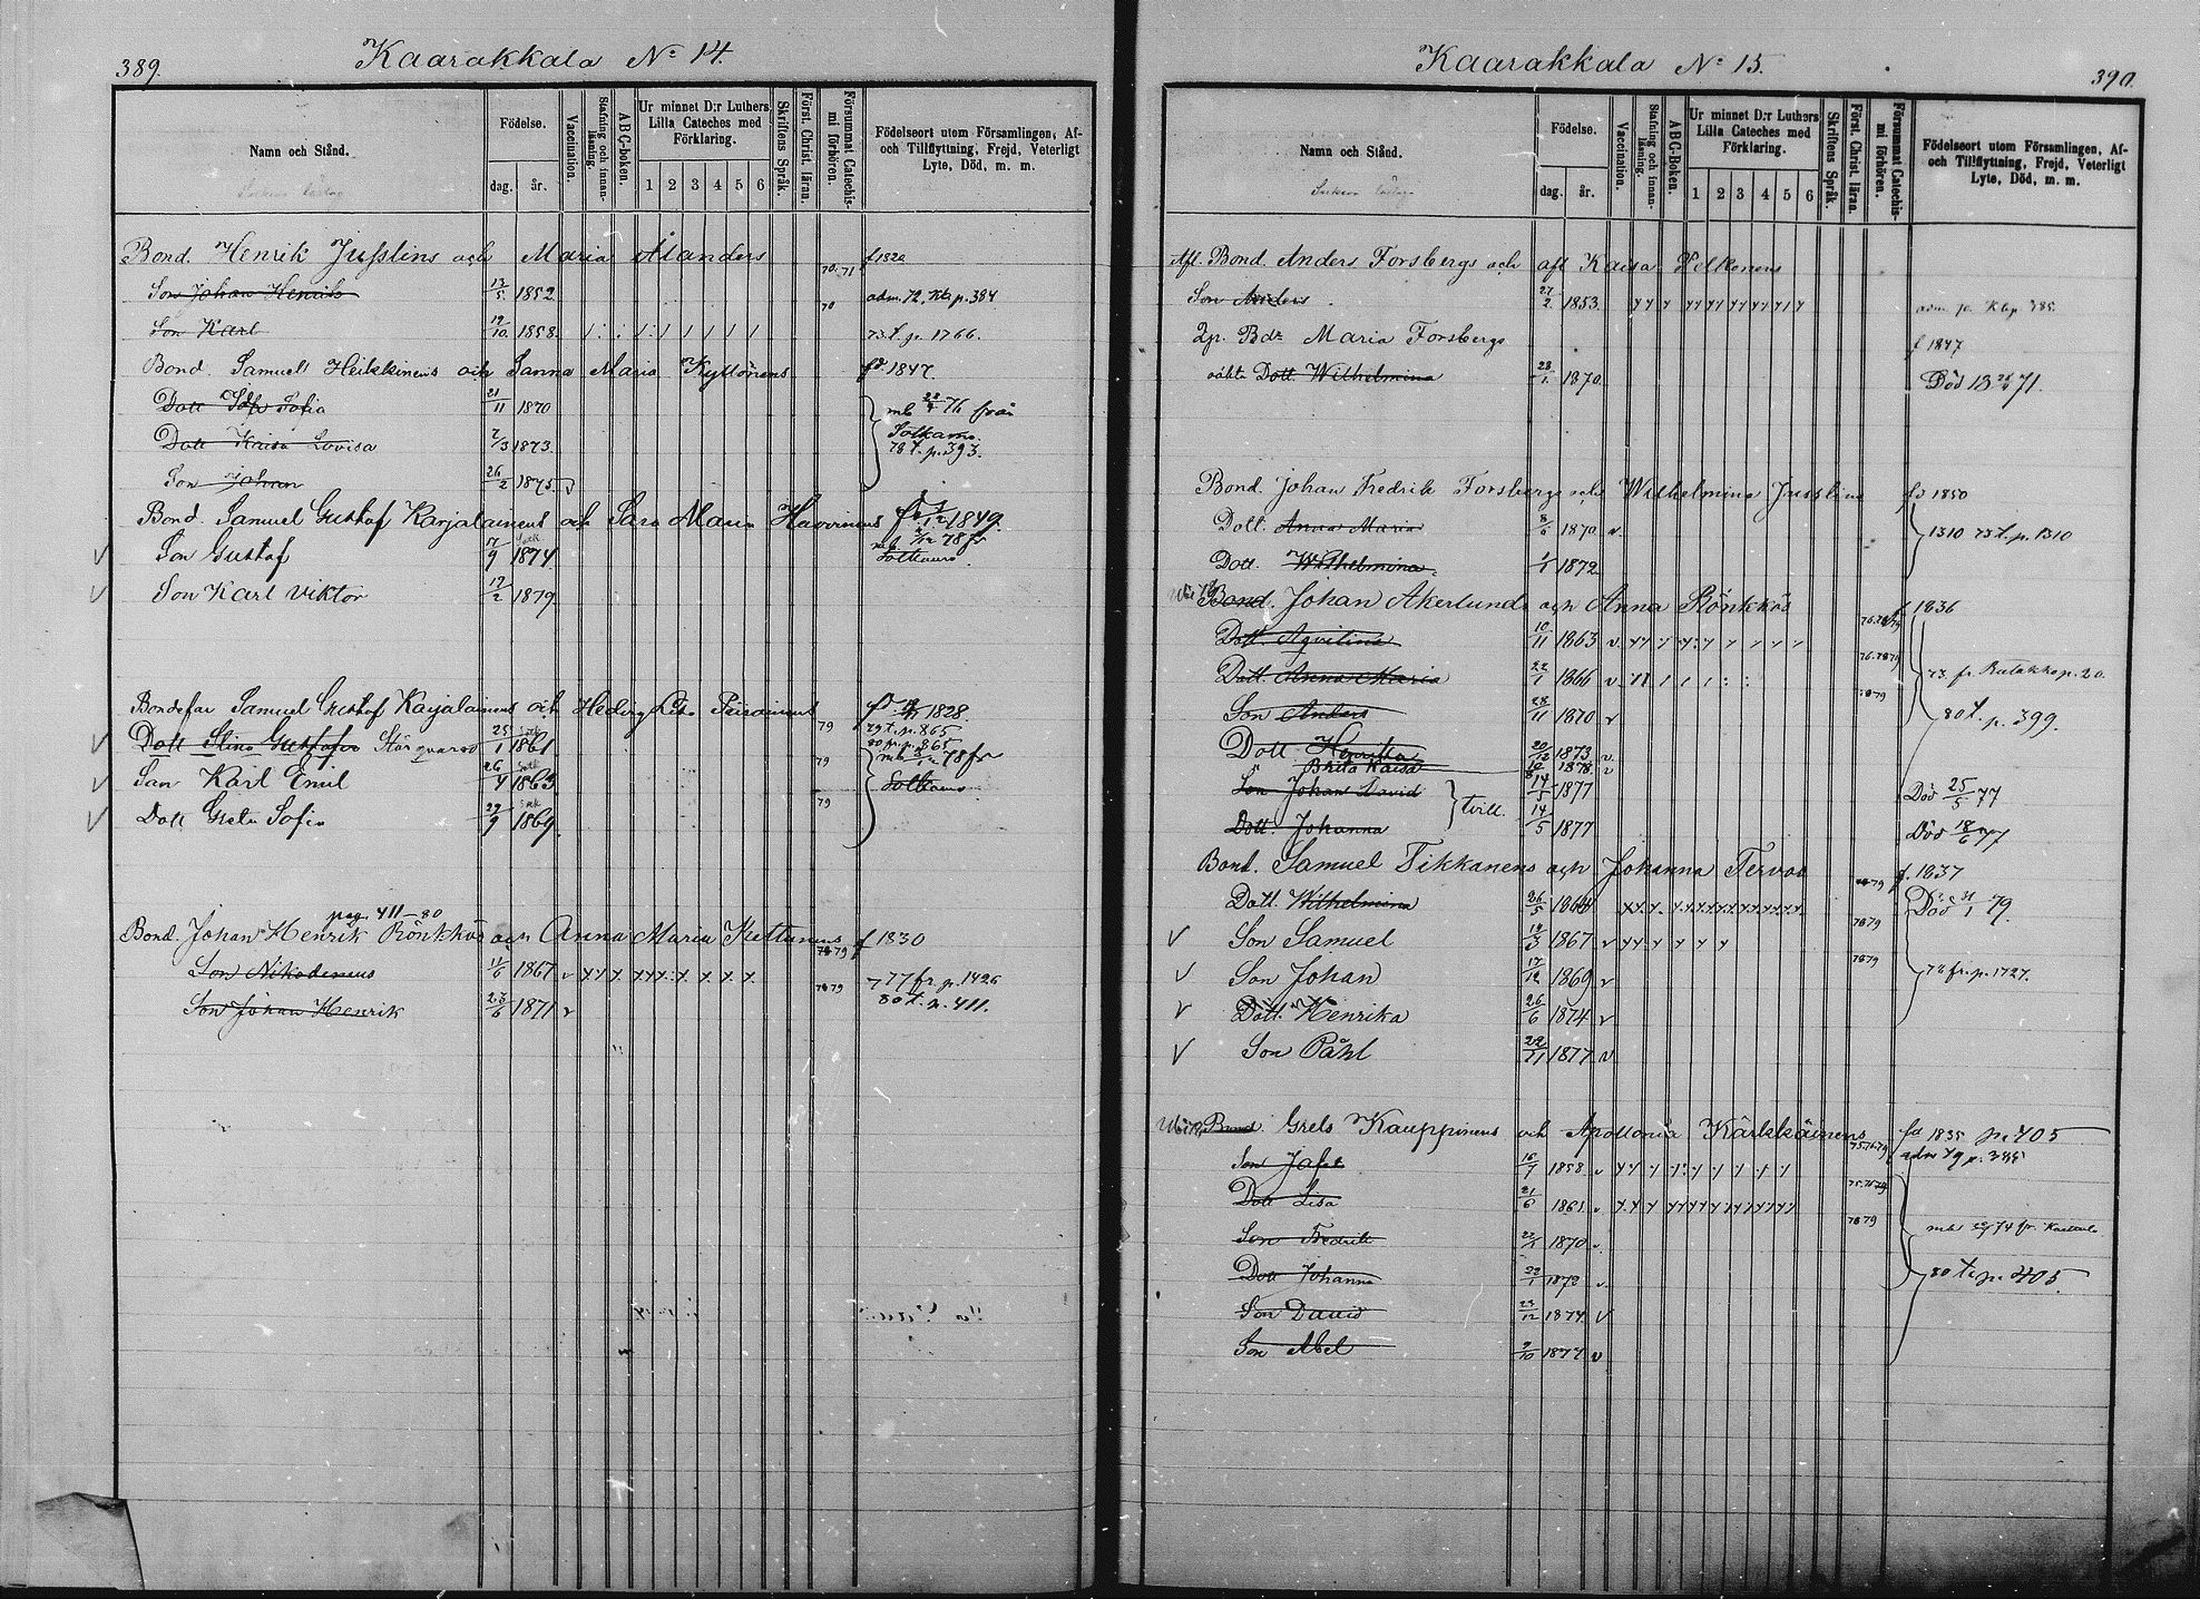 389.
Kaarakkala No 14.
Namn och Stånd.
Födelse.
dag.
år.
Vaccination.
Stafning och innan-läsning.
ABC-boken.
Ur minnet D:r Luthers
Lilla Cateches med
Förklaring.
1 2 3 4 5 6
Skriftens Språk.
Först. Christ. läran.
Försummat Catechis-mi förhören.
Födelseort utom Församlingen, Af-
och Tillflyttning, Frejd, Veterligt
Lyte, Död, m. m.
Bond. Henrik Jusslins och Maria Ålanders 70.71
Son Johan Henrik 1852 70 adm. 72. p. 384
Son Karl 19/10 1858 73. t. p. 1766.
Bond. Samuel Heikkinens och Sanna Maria Kyllönens fd 1847.
Dott Sofia 21/11 1870
Dott Kaisa Lovisa 7/3 1873. 78 t. p. 393.
Son Johan 26/2 1875.
Bond. Samuel Gustaf Karjalainens och Sara Maria 1849.
Son Gustaf 1874
Son Karl Viktor 1879
Bondefar Samuel Gustaf Karjalainens och Hedvig 1828.
Dott Stina Gustafva 25/1 1861 79 79 t. p. 865
Son Karl Emil 26/4 1863 79
Dott Greta Sofia 29/9 1869 79
pag. 411-80
Bond. Johan Henrik Rönkkös och Anna Maria Kettunens 79 f 1830
Son Nikodemus 11/6 1867 77 fr. p. 1426
Son Johan Henrik 23/6 1871 80 t. p. 411.
Kaarakkala No 15.
390.
Namn och Stånd.
Födelse.
dag.
år.
Vaccination.
Stafning och innan-läsning.
ABC-Boken.
Ur minnet D:r Luthers
Lilla Cateches med
Förklaring.
1 2 3 4 5 6
Skriftens Språk.
Först. Christ. läran.
Försummat Catechis-mi förhören.
Födelseort utom Församlingen, Af-
och Tillflyttning, Frejd, Veterligt
Lyte, Död, m. m.
Afl. Bond. Anders Forsbergs och afl Kaisa Pelkonens
Son Anders 27/2 1853.
Maria Forsbergs f 1847
oäkta Dott. Wilhelmina 28/1 1870 Död 71.
Bond. Johan Fredrik Forsbergs och Wilhelmina Jusslins fd 1850
Dott. Anna Maria 8/6 1870 v. 73 t. p. 1310
Dott. Wilhelmina 1/1 1872
Bond. Johan Akerlunds och Anna Rönkkös 1836
Dott. Aqvilina 10/11 1863 v.
Dott. Anna Maria 22/1 1866 v
Son Anders 28/11 1870 v 80 t. p. 399.
Dott Henrika 20/12 1873 v.
Brita Kaisa 1878. v
Son Johan David 14/5 1877 Död 25/5 77
tvill.
Dott. Johanna 14/5 1877 Död 18/6 77
Bond. Samuel Tikkanens och Johanna Tervos 79 f. 1837
Dott. Wilhelmina 26/5 1864 Död 31/1 79.
Son Samuel 19/3 1867 v 7879
Son Johan 17/12 1869 v 7879 78 fr. p. 1727.
Dott. Henrika 26/6 1874 v
Son Påhl 22/11 1877 v
Bond. Grels Kauppinens och Apollonia Kärkkäinens fd 1835 p. 405
Son Jafet 1858 v
Dott Lisa 21/6 1861 v
Son Fredrik 1870 v. 7879
Dott Johanna 22/1 1872 v. 80 t. p. 405
Son David 1874 v
Son Abel 9/10 1877 v